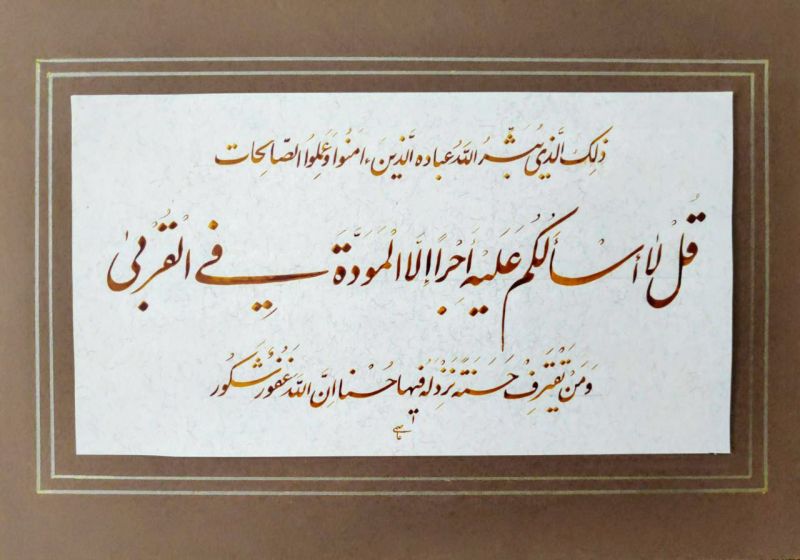 ذلِكَ الَّذي يُبَشِّرُ اللَّهُ عِباده الَّذينَ ءامَنُوا وَعَمِلُوا الصّالِحات
قُلْ لا أَسْأَلُكُمْ عَلَيْهِ أَجْراً إلَّا الْمَوَدَّةَ فِي الْقُرْبىٰ
وَمَنْ يَقْتَرِفْ حَسَنَةً نَزِدْ لَهُ فيها حُسْنا إنَّ اللَّهَ غَفُورٌ شَكُورٌ